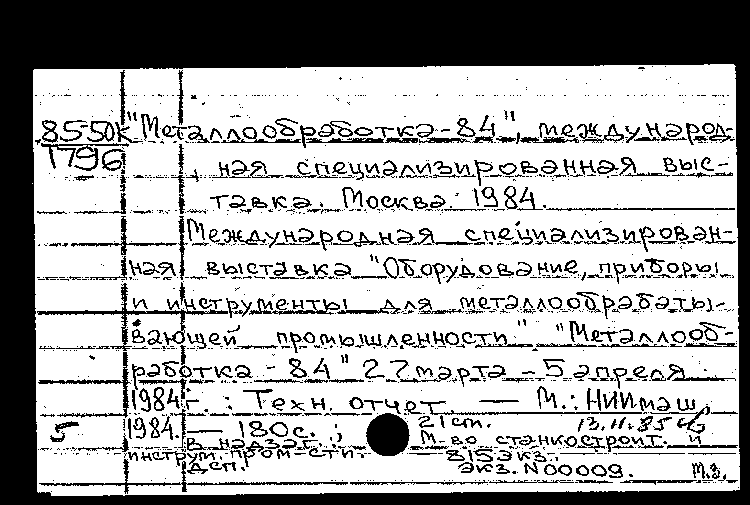 85-50к "Металлообработка-84", международ-
1796 ная специализированная выс-
тавка. Москва. 1984.
Международная специализирован-
ная выставка "Оборудование, приборы
и инструменты для металлообрабаты-
вающей промышленности" "Металлооб-
работка - 84" 27 марта - 5 апреля
1984 г. : Техн. отчет. — М.: НИИмаш,
5 1984. — 180с. ; 21 см. 13.11.85
В надзаг.: М-во станкостроит. и
инструм. пром-сти. 815 экз.
ДСП. Экз. N 00009. М.З.